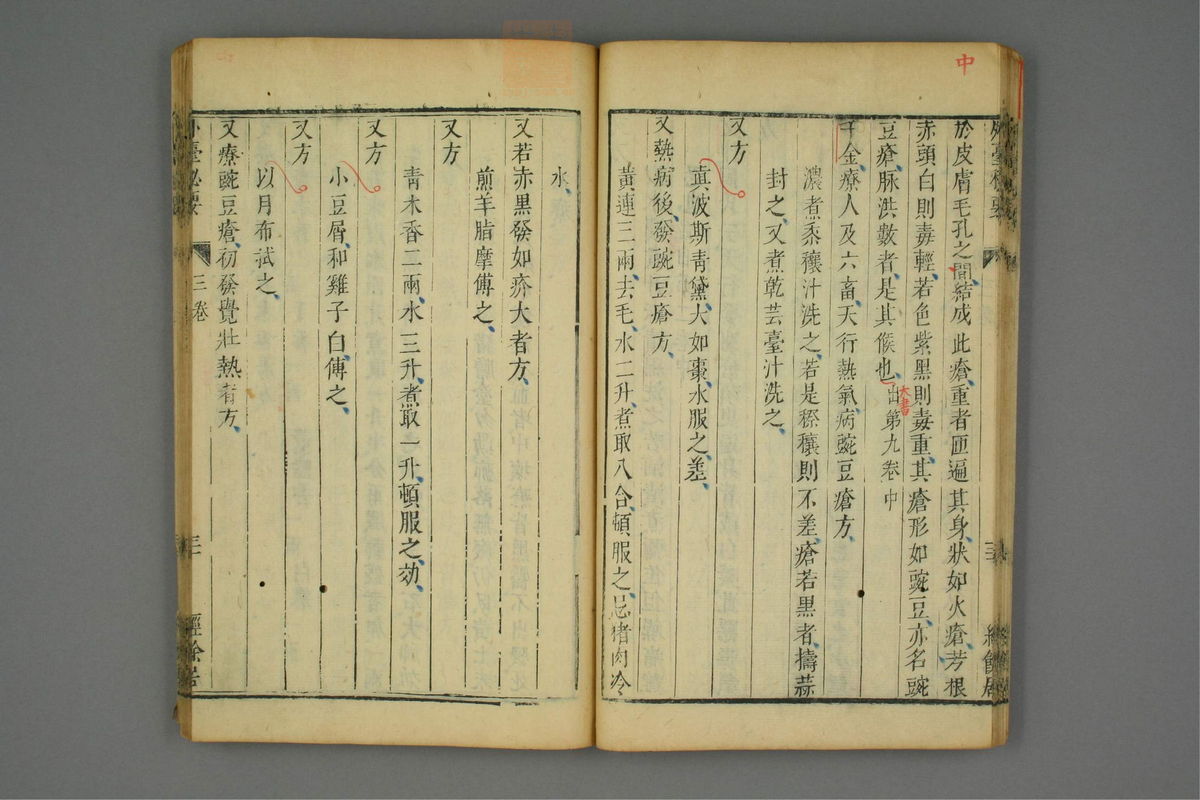 中
外臺秘要
於皮膚毛孔之間結成此瘡重者匝遍其身狀如火瘡若根
赤頭白則毒輕若色紫黑則毒重其瘡形如豌豆亦名豌
豆瘡脉洪數者是其候也出第九卷中
大書
千金療人及六畜天行熱氣病豌豆瘡方
濃煮黍穰汁洗之若是穄穰則不差瘡若黑者擣蒜
封之又煮乾芸臺汁洗之
又方
真波斯青黛大如棗水服之差
又熱病後發豌豆瘡方
黃連三兩去毛水二升煮取八合頓服之忌猪肉冷
水
又若赤黑發如疥大者方
煎羊脂摩傅之
又方
青木香二兩水三升煮取一升頓服之効
又方
小豆屑和雞子白傅之
又方
以月布拭之
又療豌豆瘡初發覺壯熱者方
外臺秘要
三卷
三
經餘居